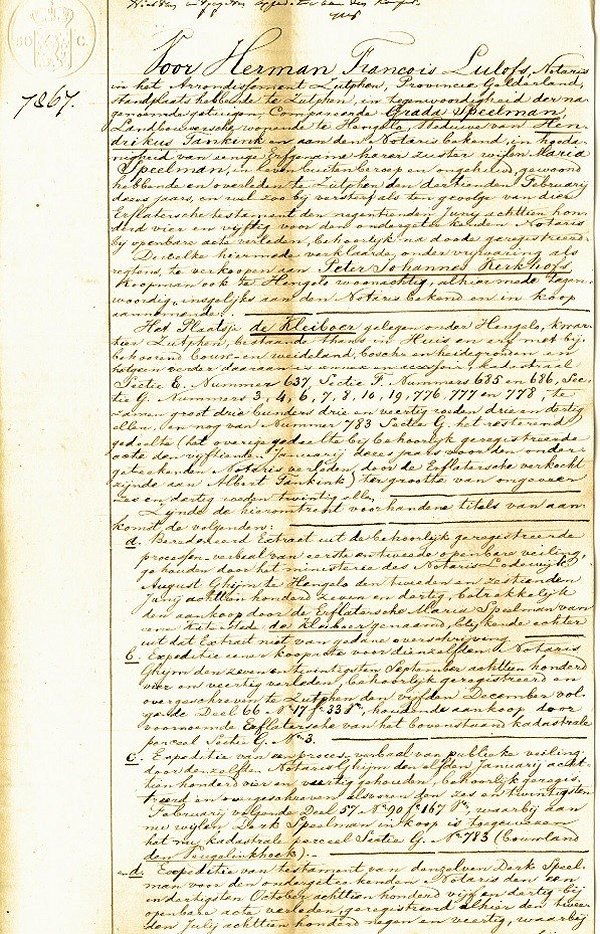 50 C.
7867.
Voor Herman François Lulofs, Notaris
in het Arrondissement Zutphen, Provincie Gelderland,
standplaats hebbende te Zutphen, in tegenwoordigheid der na
genoemde getuigen Compareerde Grada Speelman,
Landbouwersche wonende te Hengelo, Weduwe van Hen-
drikus Tankink en aan den Notaris bekend, in hoeda-
nigheid van eenige Erfgename harer zuster wijlen Maria
Speelman, in leven buiten beroep en ongehuwd, gewoond
hebbende en overleden te Zutphen den dertienden Februarij
dezes jaars, en wel zoo bij versterf als ten gevolge van dier
Erflatersche testament den negentienden Junij achttien hon-
derd vier en vijftig voor den ondergeteekenden Notaris
bij openbare acte verleden, behoorlijk na doode geregistreerd.
Dewelke hiermede verklaarde, onder vrijwaring als
regtens, te verkoopen aan Peter Johannes Kerkhofs
Koopman ook te Hengelo woonachtig, alhier mede tegen-
woordig, insgelijks aan den Notaris bekend en in koop
aannemende:
Het Plaatsje de Kleiboer gelegen onder Hengelo, kwar-
tier Zutphen, bestaande thans in Huis en erf met bij-
behoorend bouw- en weideland, bosch en heidegronden en
hetgeen verder daaraan is annex en accessoir, kadastraal
Sectie E. Nummer 637, Sectie F. Nummers 685 en 686, Sec-
tie G. Nummers 3, 4, 6, 7, 8, 10, 19, 776, 777 en 778, te
zamen groot drie bunders drie en veertig roeden drie en dertig
ellen, en nog van Nummer 783 Sectie G. het resterend
gedeelte (het overige gedeelte bij behoorlijk geregistreerde
acte den vijftienden Januarij dezes jaars voor den onder-
geteekenden Notaris verleden, door de Erflatersche verkocht
zijnde aan Albert Tankink) ter grootte van ongeveer
zes en dertig roeden twintig elle.
Zijnde de hieromtrent voorhandene titels van aan-
komst de volgenden:
a. Geredigeerd Extract uit de behoorlijk geregistreerde
processen-verbaal van eerste en tweede openbare veiling,
gehouden door het ministerie des Notaris Lodewijk
August Ghijm te Hengelo den tweeden en zestienden
Junij achttien honderd zeven en dertig, betrekkelijk
den aankoop door de Erflatersche Maria Speelman van
de Kleiboer genaamd, blijkende echter
uit dat Extract niet van gedane overschrijving.
b. Expeditie eener koopacte voor dienzelfden Notaris
Ghijm den zeven en twintigsten September achttien honderd
vier en veertig verleden, behoorlijk geregistreerd en
overgeschreven te Zutphen den vijfden December vol-
gende Deel 66 No 17 fo 33 Vo, houdende aankoop door
voornoemde Erflatersche van het bovenstaand kadastrale
perceel Sectie G. No 3.
c. Expeditie van een proces verbaal van publieke veiling
door denzelfden Notaris Ghijm den elfden Januarij acht-
tien honderd vier en veertig gehouden, behoorlijk geregis-
treerd en overgeschreven alsvoren den zes en twintigsten
Februarij volgende Deel 57 No 90 fo 167 Vo, waarbij aan
nu wijlen Derk Speelman in koop is toegewezen
het nu kadastrale perceel Sectie G. No 783 (bouwland
den Teugelinkhoek).
en d. Expeditie van testament van denzelven Derk Speel-
man voor den ondergeteekenden Notaris den een
en dertigsten October achttien honderd vijf en dertig bij
openbare acte verleden, geregistreerd alhier den twee-
den Julij achttien honderd negen en veertig, waarbij